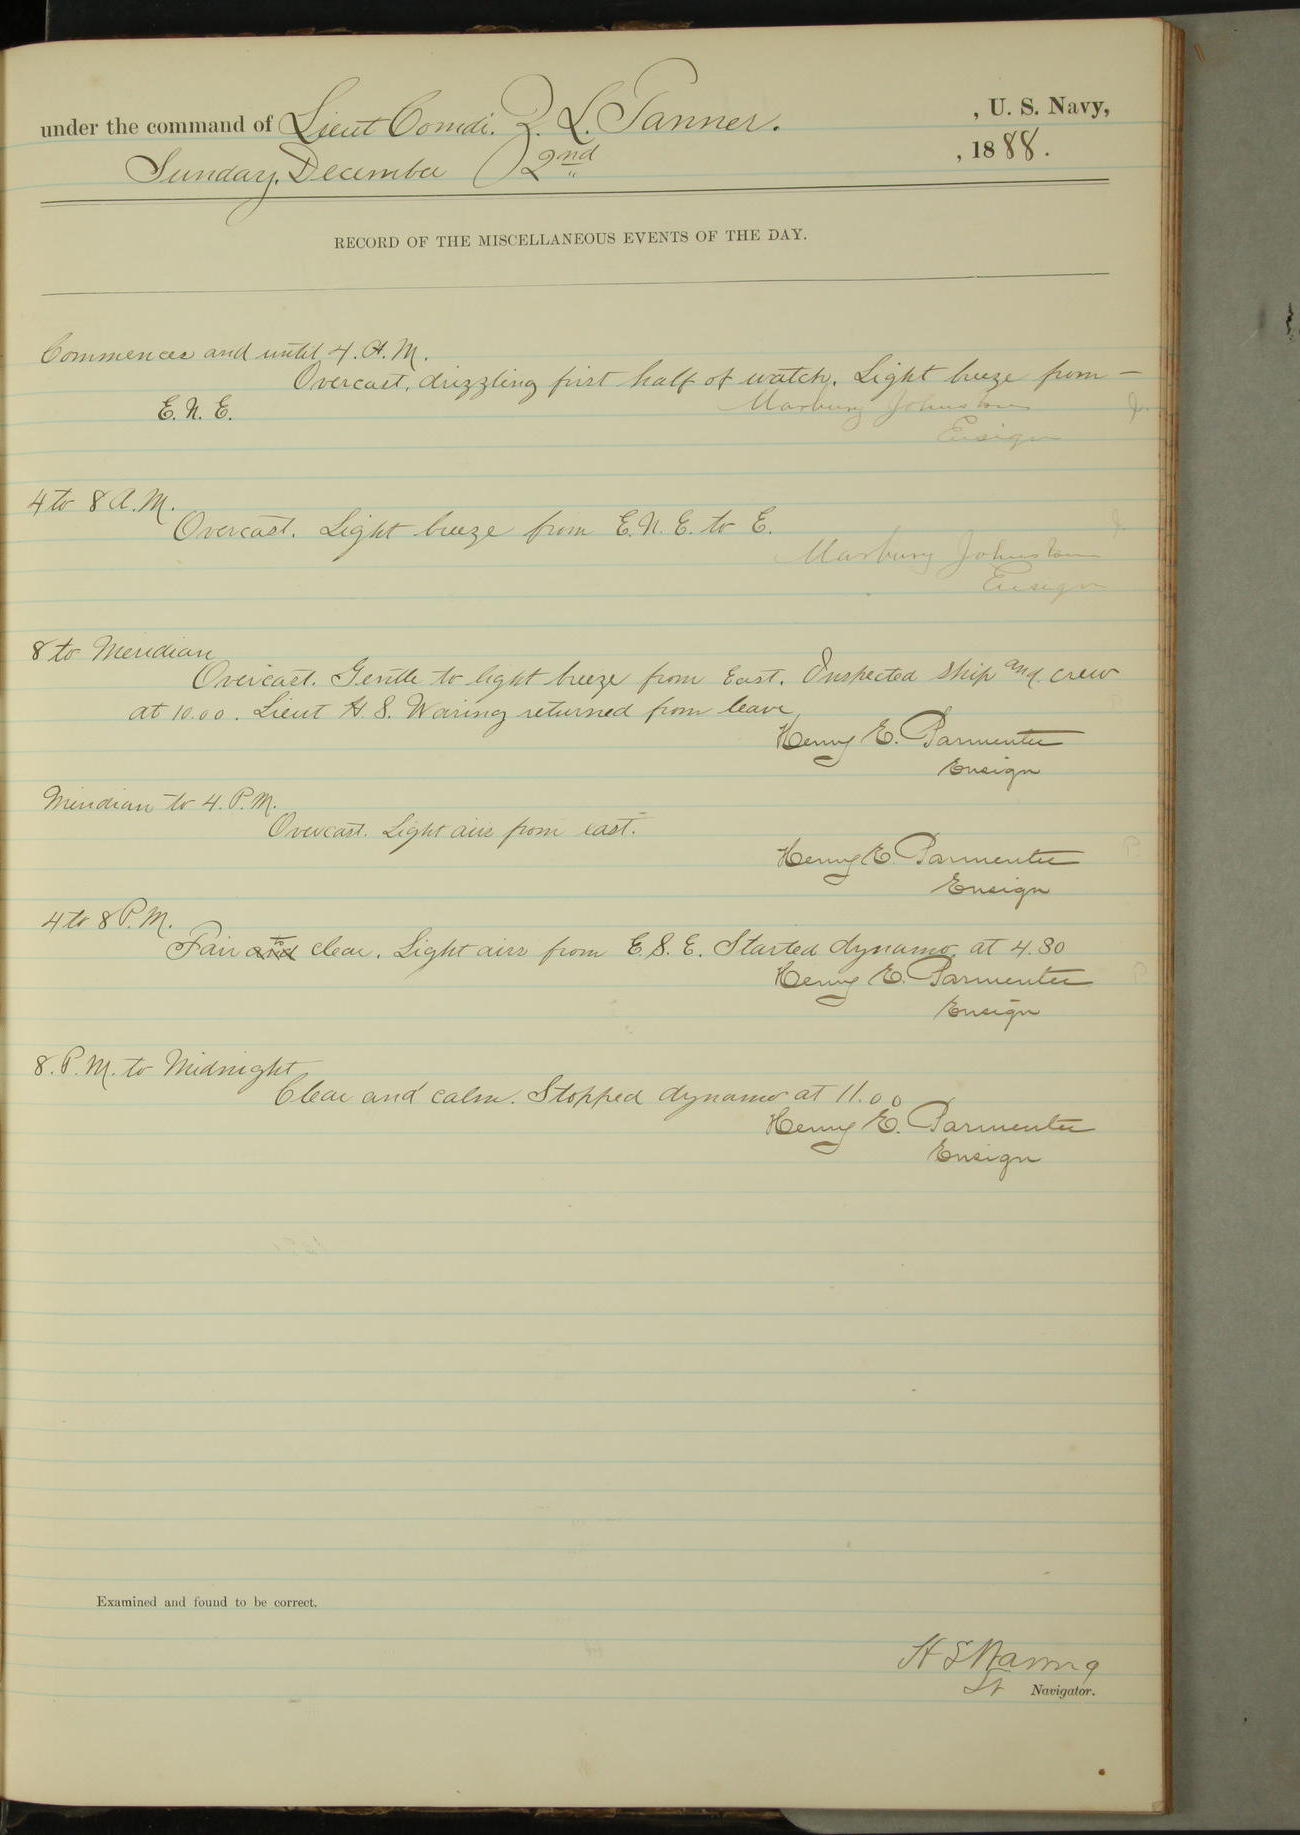 under the command of Lieut Comdr. Z. L. Tanner. , U. S. Navy,
Sunday, December 2nd , 1888.
RECORD OF THE MISCELLANEOUS EVENTS OF THE DAY.
Commences and until 4. A. M.
Overcast, drizzling first half of watch. Light breeze from –
E. N. E.
Marbury Johnston
Ensign
4 to 8 A. M.
Overcast. Light breeze from E. N. E. to E.
Marbury Johnston
Ensign
8 to Meridian
Overcast. Gentle to light breeze from East. Inspected ship and crew
at 10.00. Lieut H. S. Waring returned from leave
Henry E. Parmenter
Ensign
Meridian to 4. P. M.
Overcast. Light airs from east.
Henry E. Parmenter
Ensign
4 to 8 P. M.
Fair and to clear. Light airs from E. S. E. Started dynamo at 4.30
Henry E. Parmenter
Ensign
8. P. M. to Midnight
Clear and calm. Stopped dynamo at 11.00
Henry E. Parmenter
Ensign
Examined and found to be correct.
H S Waring
Lt Navigator.